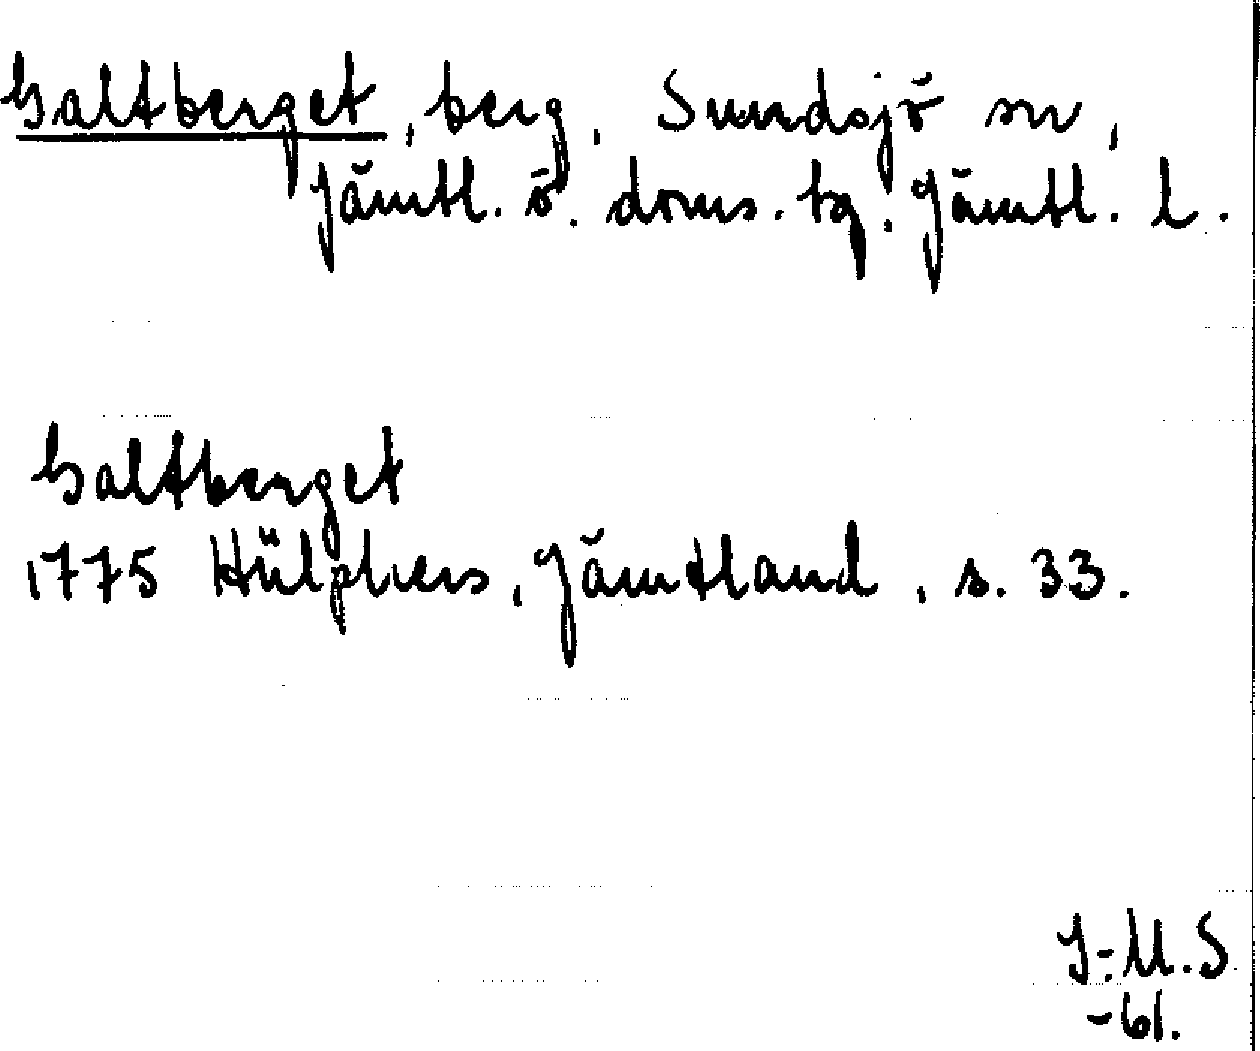 Galtberget, berg, Sundsjö sn,
Jämtl. ö. doms. tg. Jämtl. l.
Galtberget
1775 Hülphers, Jämtland, s. 33.
I-M.S.
-61.